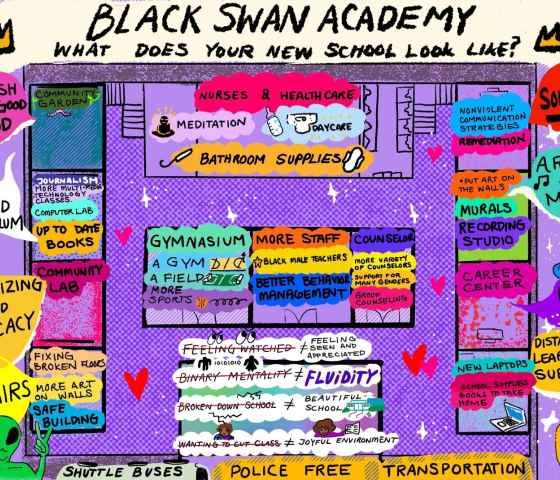 BLACK SWAN ACADEMY
WHAT DOES YOUR NEW SCHOOL LOOK LIKE?
COMMUNITY
GARDEN
JOURNALISM
MORE MULTI-MEDIA
TECHNOLOGY
CLASSES
COMPUTER LAB
UP TO DATE
BOOKS
COMMUNITY
LAB
FIXING
BROKEN FLOORS
MORE ART
ON WALLS
SAFE
BUILDING
NURSES & HEALTHCARE
MEDITATION
DAYCARE
BATHROOM SUPPLIES
GYMNASIUM
A GYM
A FIELD
MORE
SPORTS
MORE STAFF
BLACK MALE TEACHERS
BETTER BEHAVIOR
MANAGEMENT
COUNSELOR
MORE VARIETY
OF COUNSELORS
SUPPORT FOR
MANY GENDERS
GROUP
COUNSELING
FEELING WATCHED ≠ FEELING
SEEN AND
APPRECIATED
BINARY MENTALITY ≠ FLUIDITY
BROKEN DOWN SCHOOL ≠ BEAUTIFUL
SCHOOL
WANTING TO CUT CLASS ≠ JOYFUL ENVIRONMENT
NONVIOLENT
COMMUNICATION
STRATEGIES
REMEDIATION
+PUT ART ON
THE WALLS
MURALS
RECORDING
STUDIO
CAREER
CENTER
NEW LAPTOPS
SCHOOL SUPPLIES
BOOKS TO TAKE
HOME
SHUTTLE BUSES
POLICE FREE
TRANSPORTATION